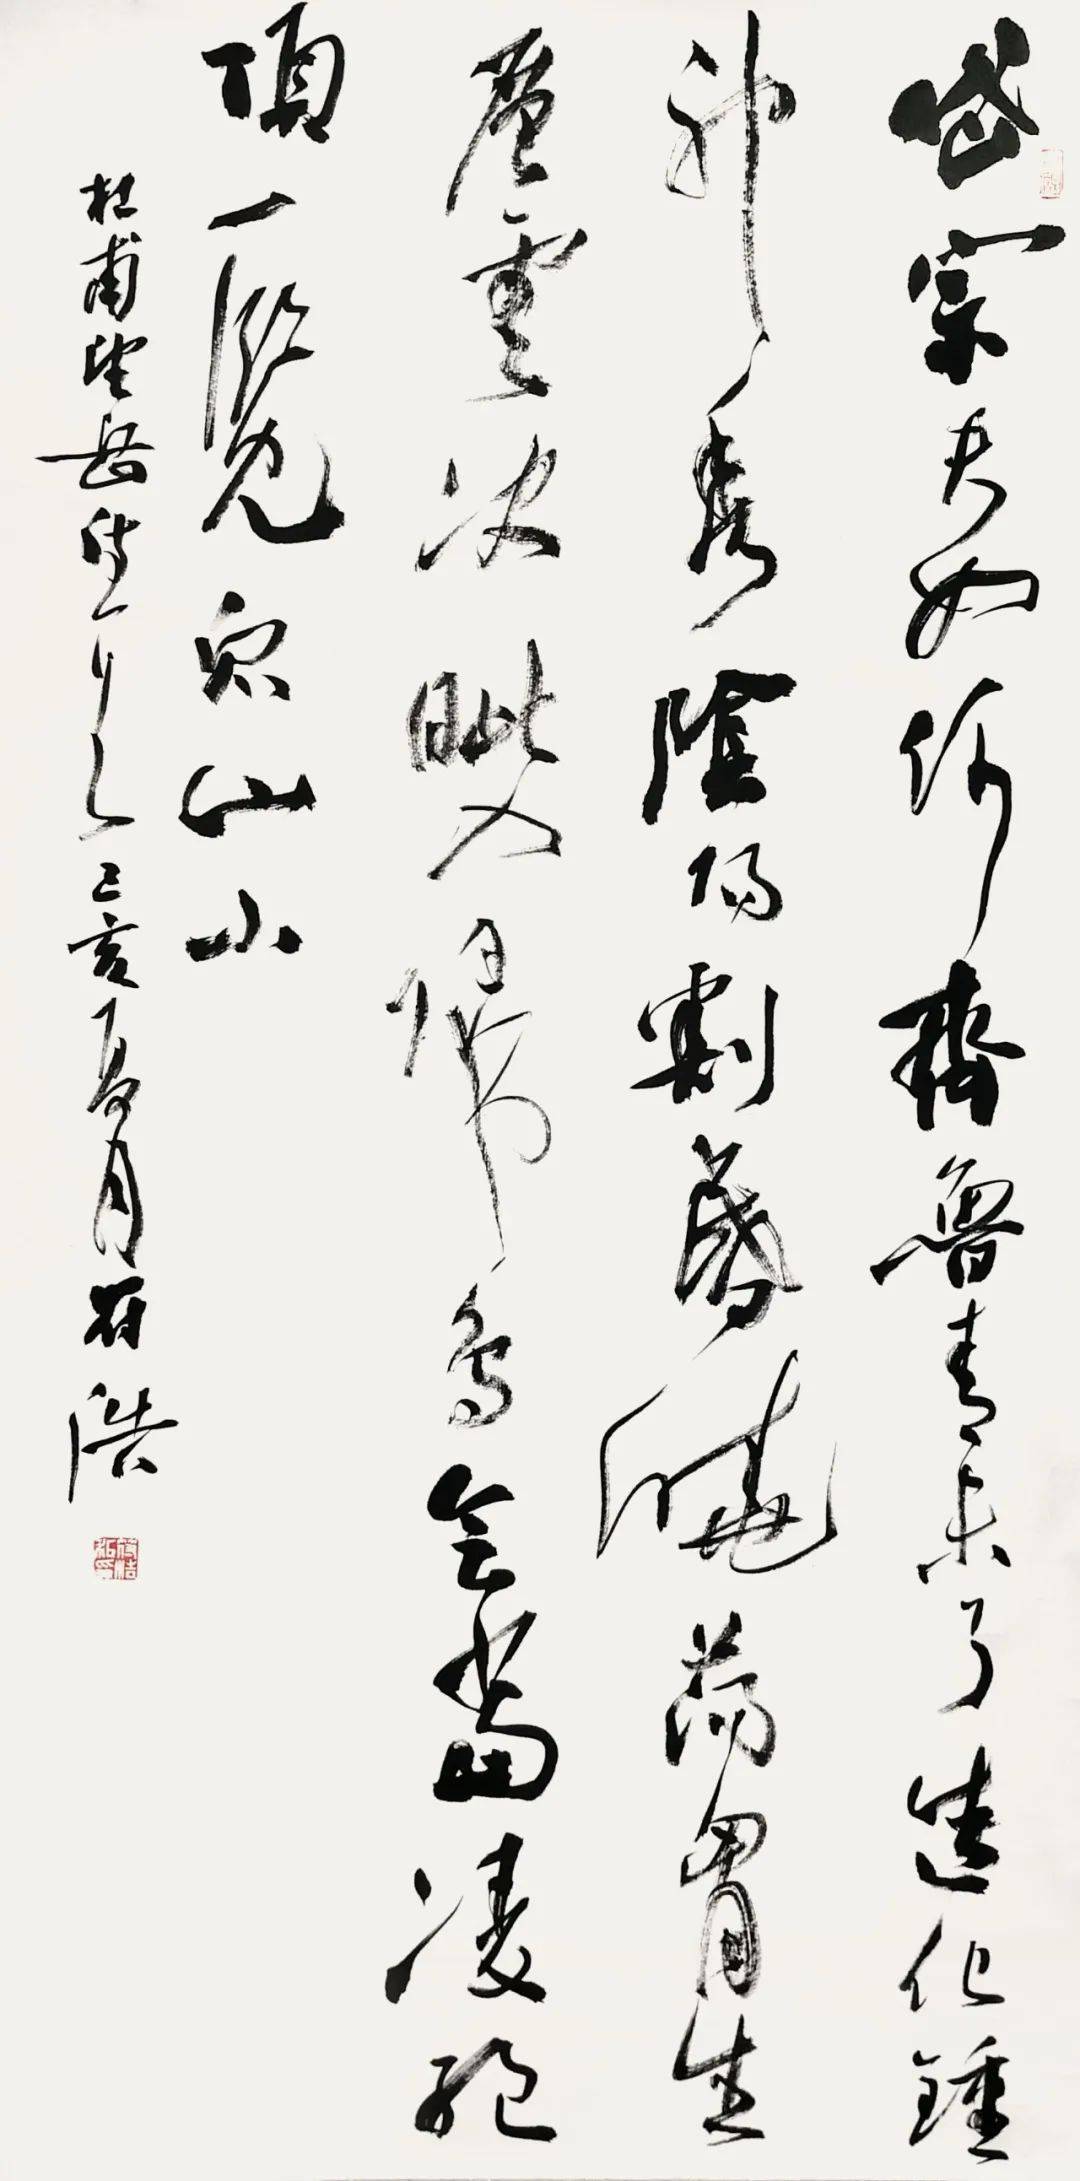 岱宗夫如何齊魯青未了造化鍾
神秀陰陽割昏曉蕩胷生
層雲决眥入歸鳥会當凌絕
頂一覽衆山小
杜甫望岳詩一首己亥夏月浩